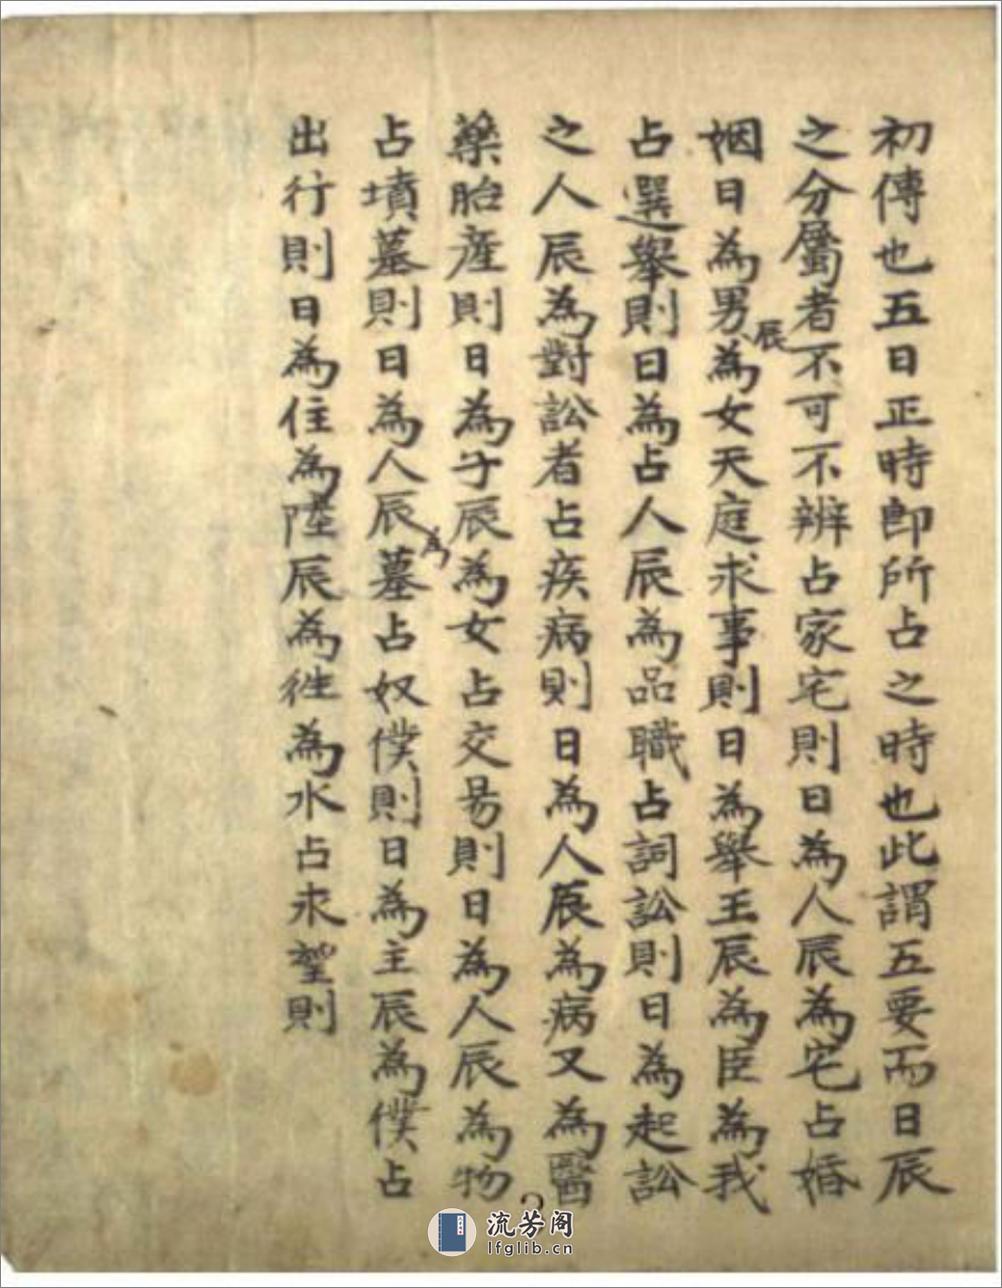 初傳也五日正時即所占之時也此謂五要而日辰
之分屬者不可不辨占家宅則日為人辰為宅占婚
姻日為男辰為女天庭求事則日為舉王辰為臣為我
占選舉則日為占人辰為品職占詞訟則日為起訟
之人辰為對訟者占疾病則日為人辰為病又為醫
藥胎產則日為子辰為女占交易則日為人辰為物
占墳墓則日為人辰為墓占奴僕則日為主辰為僕占
出行則日為住為陸辰為徃為水占求望則
2
流芳阁
lfglib.cn